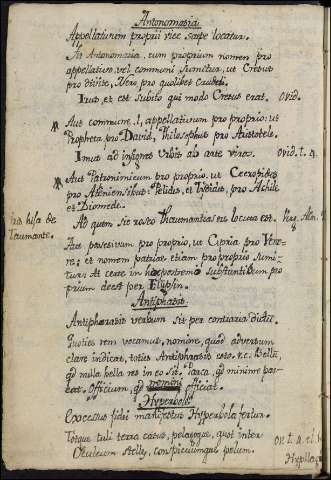 Antonomasia
Appellativum proprii vice saepe locatur.
Fit Antonomasia, cum proprium nomen pro
appellativo, vel communi sumitur, ut Cresus
pro divite, Nero pro quolibet crudeli.
Irus, et est subito qui modo Cresus erat. Ovid.
Aut commune, l, appellativum pro proprio: ut
Propheta pro David, Philosophus pro Aristotele.
ad insignes Urbis ab arte viros. ovid. t. a.
Aut Patronimicum pro proprio. ut Cecropides
pro Atheniensibus: Pelides, et Tydides, pro Achile
et Diomede.
Iris hija de
Taumante.
Ad quem sic roseo Thaumantias ore locuta est.
Aut possesivum pro proprio, ut Cypria pro Vene-
re: et nomen patriae etiam pro proprio sumi-
tur: At certe in his postremis substantivum pro
prium deest per Elipsin.
Antiphrasis.
Antiphrasis verbum sit per contraria dictum.
Quoties rem vocamus, nomine, quod adversum
clare indicat, toties Antiphrasis est. v. c. Bellu,
qd nulla bella res in eo sit. Parca, qd minime par-
cat. Officium, qd officiat.
Hyperbole
Excessus fidei manifestus Hyperbola fertur.
Totque tuli terra casus, pelagoque, quot inter
Oculeum stellae, conspicuumque polum.